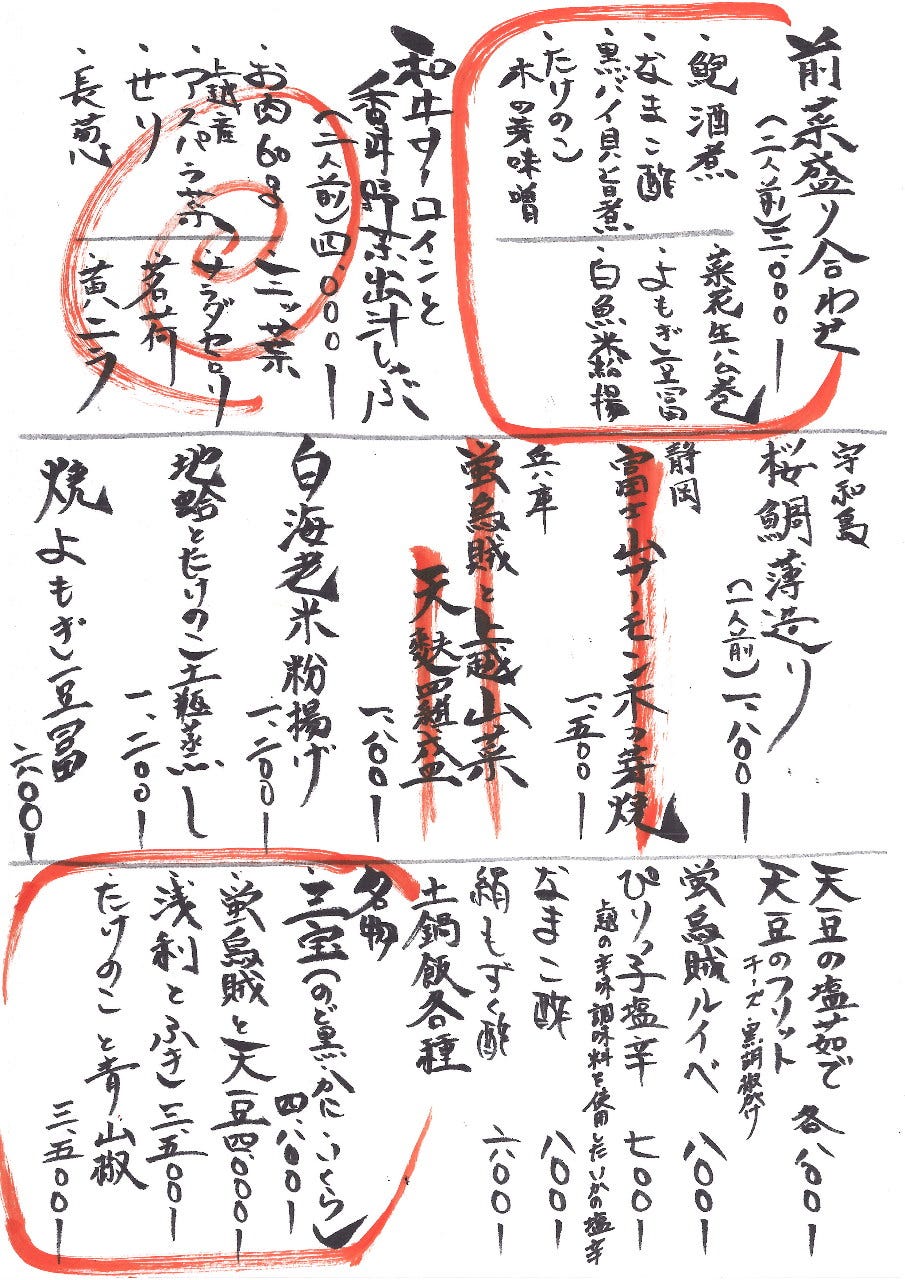 前菜盛り合わせ
(二人前)三、000
・鮑酒煮
・なまこ酢
・黒バイ貝旨煮
・たけのこ
木の芽味噌
・菜花生ハム巻
・よもぎ豆富
・白魚米粉揚
和牛サーロインと
香味野菜出汁しゃぶ
(二人前)四、000
・お肉60g
・上越産
アスパラ菜
・せり
・長葱
・三ッ葉
・サラダセロリ
・茗荷
・黄ニラ
宇和島
桜鯛薄造り
(一人前)一、八00
静岡
富士山サーモン木の芽焼
一、五00
兵庫
蛍烏賊と上越山菜
天麩羅盛
一、八00
白海老米粉揚げ
一、二00
地蛤とたけのこ土瓶蒸し
一、二00
焼よもぎ豆富
六00
天豆の塩茹で 各八00
天豆のフリット
チーズ・黒胡椒がけ
蛍烏賊ルイベ 八00
ぴりっ子塩辛 七00
上越の辛味調味料を使用したいかの塩辛
なまこ酢 八00
絹もずく酢 六00
土鍋飯各種
名物
三宝(のど黒・かに・いくら)
四、八00
蛍烏賊と天豆 四、000
浅利とふき 三、五00
たけのこと青山椒
三、五00